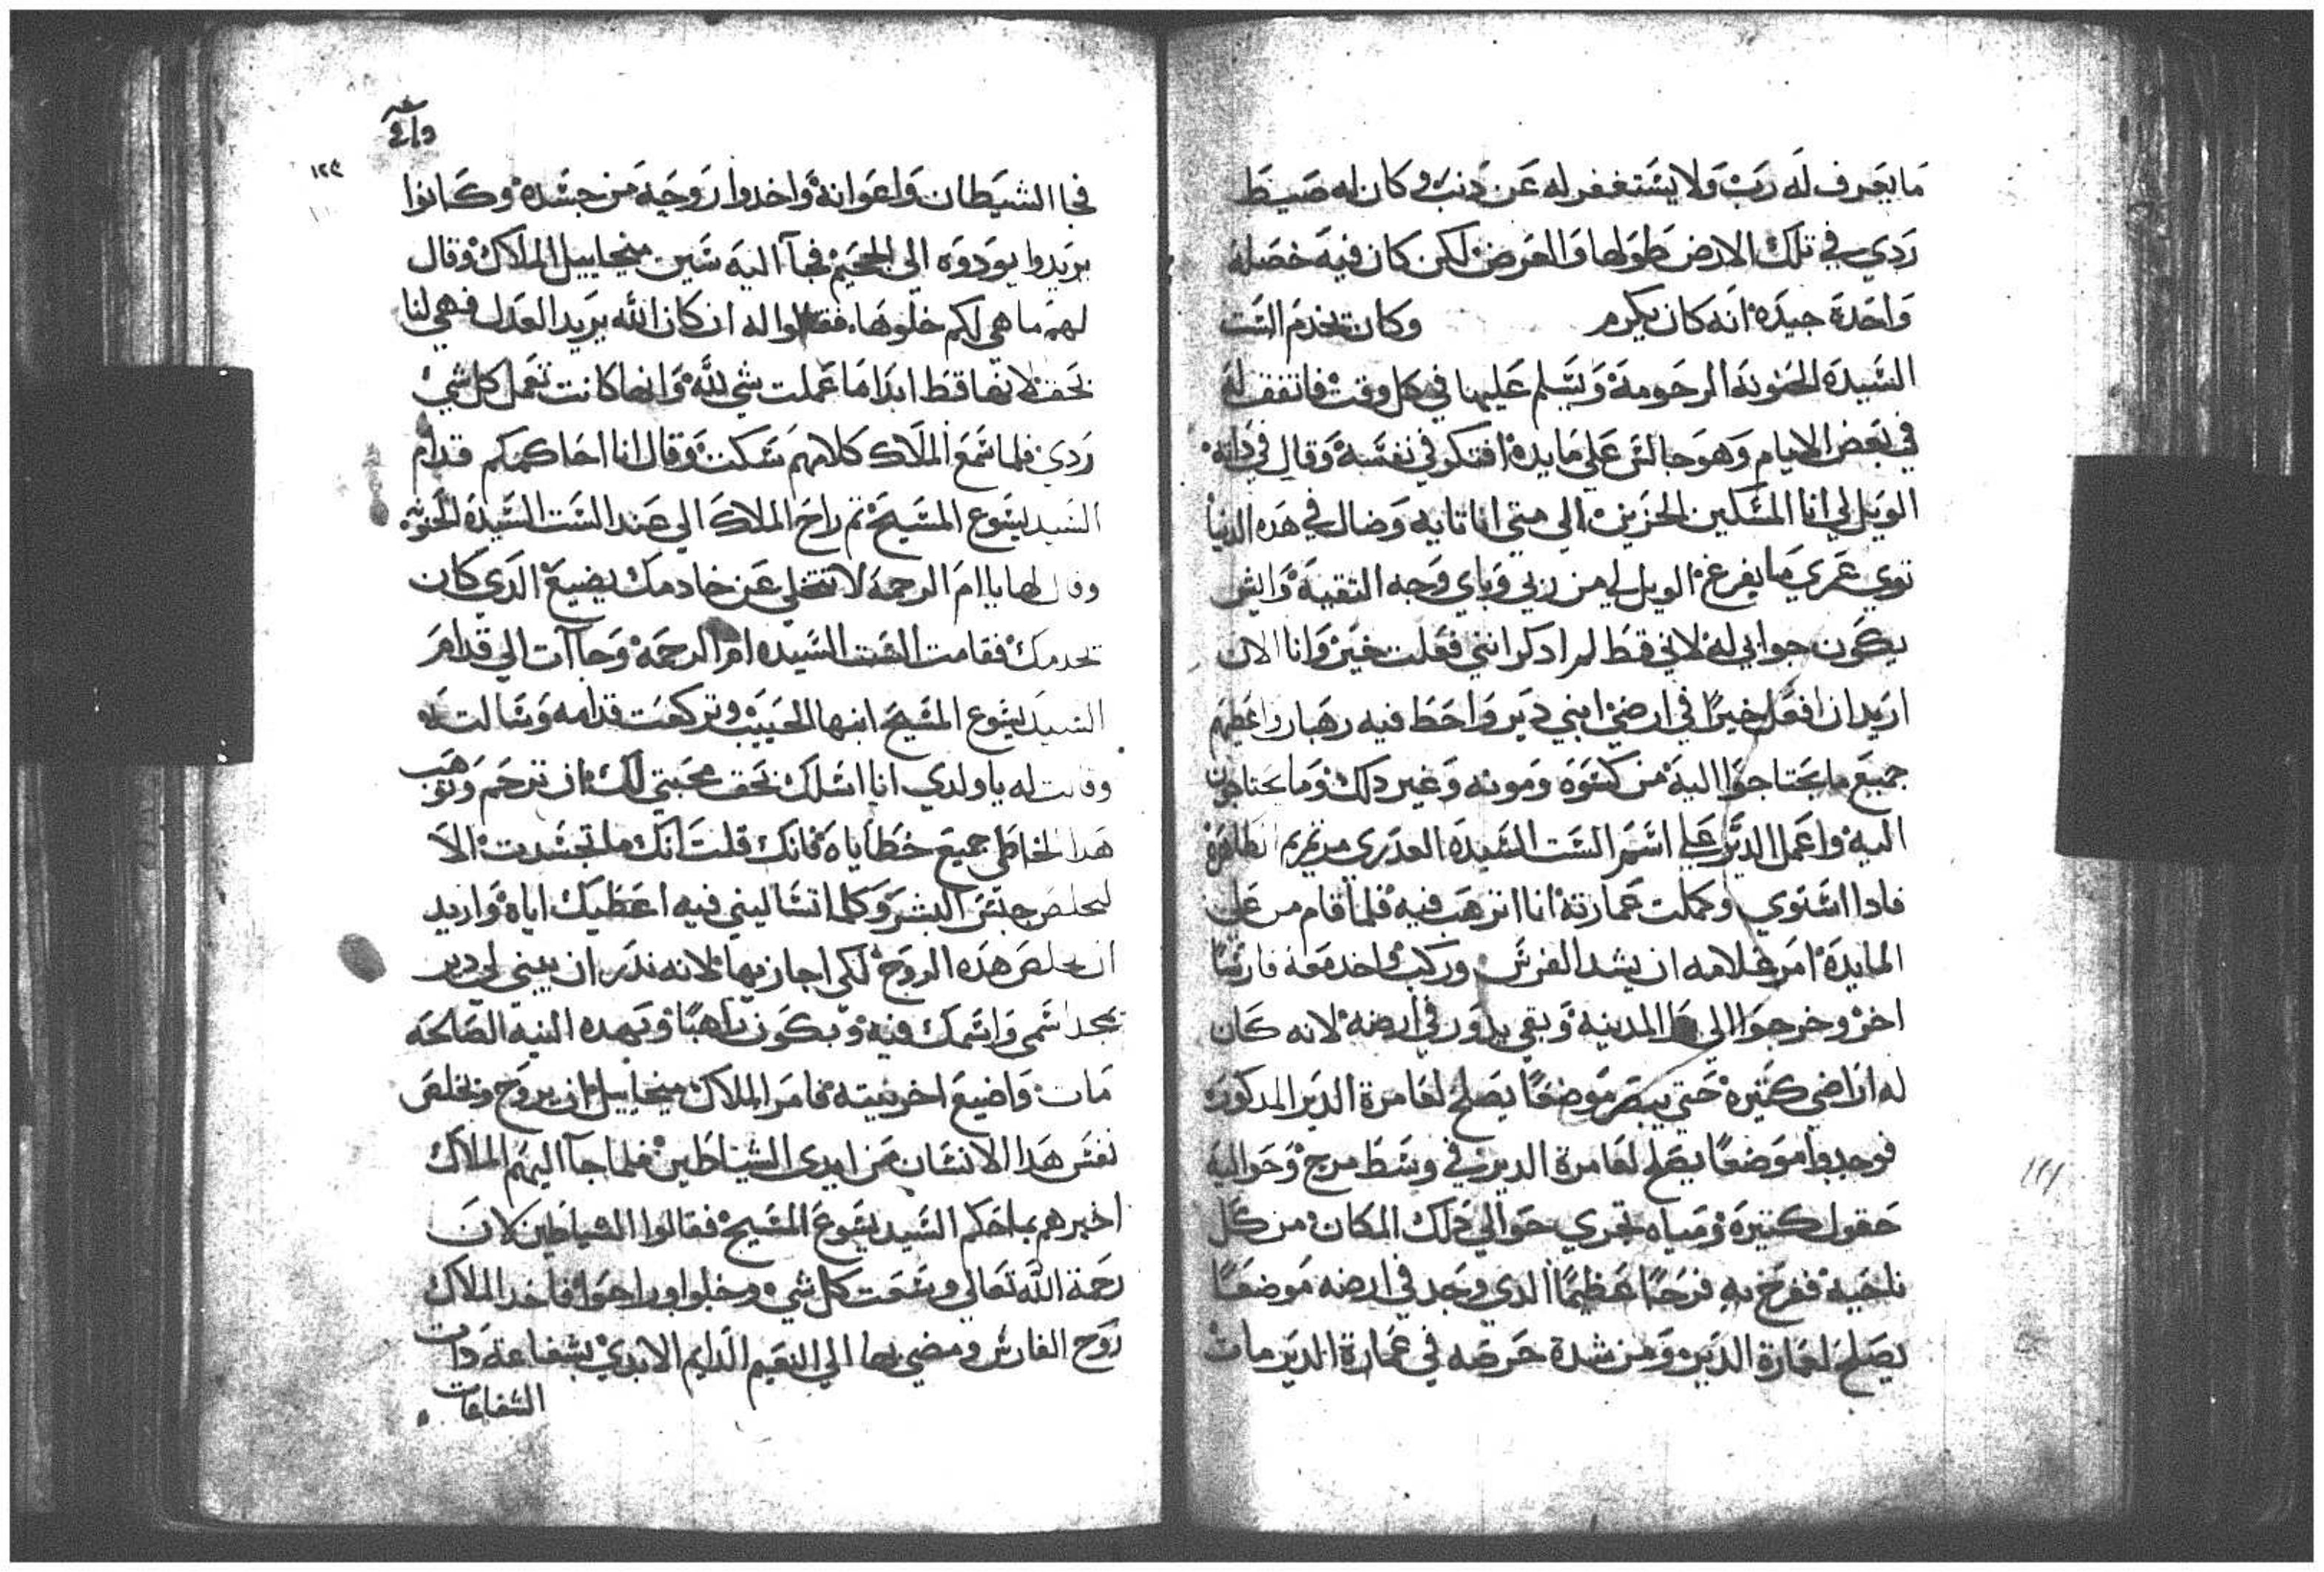 ما يعرف له رب ولا يستغفر له عن دنب وكان له صيط
ردي في تلك الارض طولها والعرض لكن كان فيه خصله
واحدة جيده انه كان يكرم وكان تخدم الست
السيده الحنونه المرحومه ويسلم عليها في كل وقت فاتفق له
في بعض الايام وهو جالس علي مايده افتكر في نفسه وقال في داته
الويل لي انا المسكين الحزين الي متي انا تايه وضال في هده الدنيا
توي عمري ما يفرغ الويل لي من ربي وباي وجه التقيه وايش
يكون جوابي له لاني قط لم ادكر انني فعلت خير وانا الان
اريد ان افعل خيرا في ارضي ابني دير واحط فيه رهبان واعطيهم
جميع ما يحتاجوا اليه من كسوه ومونه وغير دلك وما يحتاجون
اليه واعمل الدير علي اسم الست السيده العدري مرتمريم الطاهره
فادا استوي وكملت عمارته انا اترهب فيه فلما قام من علي
المايدة امر غلامه ان يشد الفرس وركب واخد معه فارسا
اخر وخرجوا الي المدينه وبقي يدور في ارضه لانه كان
له اراضي كتيره حتي يبصر موضعا يصلح لعامرة الدير المدكوره
فوجدوا موضعا يصلح لعامرة الدير في وسط مرج وحواليه
حقول كتيره ومياه تجري حوالي دلك المكان من كل
ناحيه ففرح به فرحا عظيما الدي وجد في ارضه موضعا
يصلح لعمارة الدير ومن شدة حرصه في عمارة الدير مات
١٢٤
فجا الشيطان واعوانه واخدوا روحيه من جسده وكانوا
يريدوا يودوه الي الجحيم فجآ اليه سين ميخاييل الملاك وقال
لهم ما هي لكم خلوها فقالوا له ان كان الله يريد العدل فهي لنا
بحق لانها قط ابدا ما عملت شي لله وانها كانت تعمل كل شي
ردي فلما سمع الملاك كلامهم سكت وقال انا احاكمكم قدام
السيد يسوع المسيح تم راح الملاك الي عند الست السيدة الحنونه
وقال لها يا ام الرحمه لا تتخلي عن خادمك يضيع الدي كان
تخدمك فقامت الست السيده ام الرحمه وجاآت الي قدام
السيد يسوع المسيح ابنها الحبيب وتركعت قدامه وسالت له
وقالت له يا ولدي انا اسلك بحق محبتي لك ان ترحم وتوهب
هدا الخاطي جميع خطاياه فانك قلت انك ما تجسدت الا
لتخلص جنس البشر وكلما تساليني فيه اعطيك اياه واريد
ان تخلص هده الروح لكي اجازيها لانه ندر ان يبني لي دير
تمجد اسمي واسمك فيه ويكون راهبا وبهده النيه الصالحه
مات واضيع اخر نيته فامر الملاك ميخاييل ان يروح وتخلص
نفس هدا الانسان من ايدي الشياطين فلما جآ اليهم الملاك
اخبرهم بما حكم السيد يسوع المسيح فقالوا الشياطين لان
رحمة الله تعالي وسعت كل شي وخلوا وراحوا فاخد الملاك
روح الفارس ومضي بها الي النعيم الدايم الابدي بشفاعة دات
الشفاعات